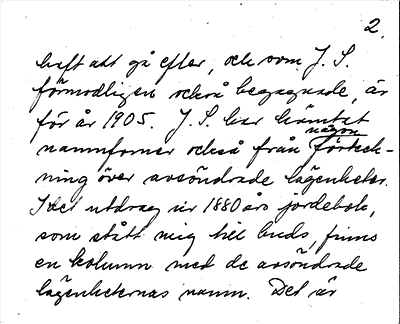 2.
haft att gå efter, och som J. S.
förmodligen också begagnade, är
för år 1905. J. S. har hämtat
namnformer också från någon förteck-
ning över avsöndrade lägenheter.
I det utdrag ur 1880 års jordebok,
som stått mig till buds, finns
en kolumn med de avsöndrade
lägenheternas namn. Det är